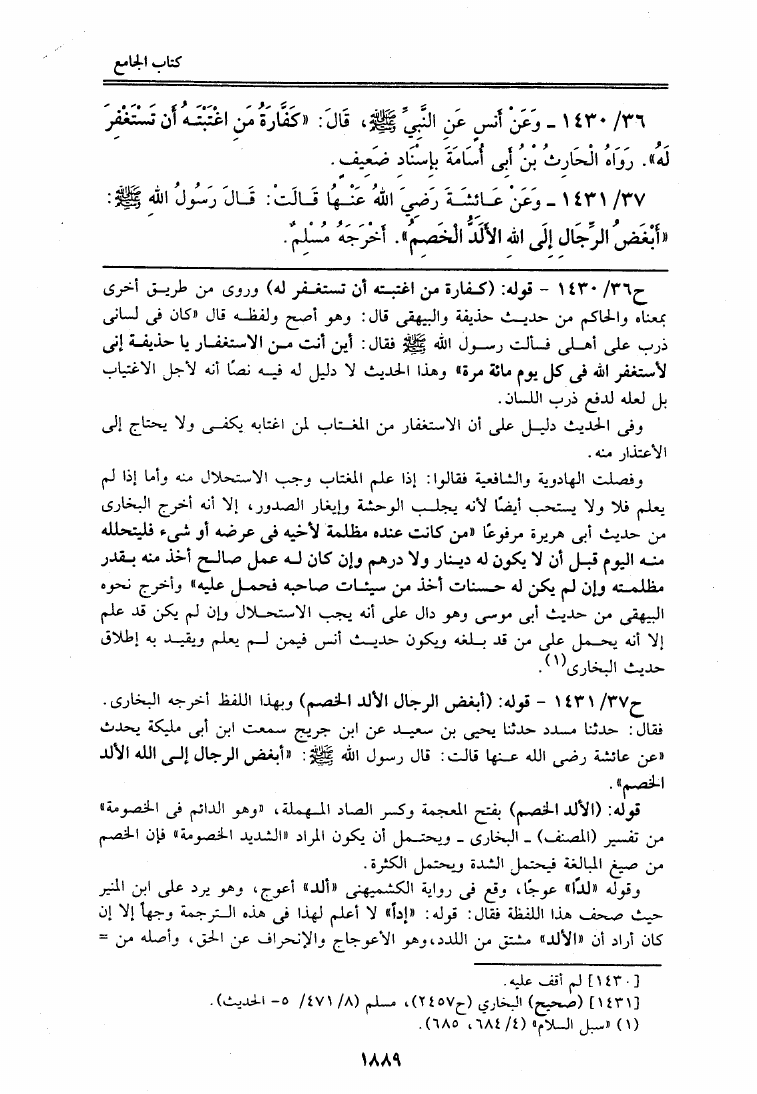 كتاب الجامع
١٤٣٠/٣٦ ـ وَعَنْ أَنَسٍ عَنِ النَّبِيِّ ﷺ، قَالَ: «كَفَّارَةُ مَنِ اغْتَبْتَهُ أَن تَسْتَغْفِرَ
لَهُ». رَوَاهُ الْحَارِثُ بْنُ أَبِى أُسَامَةَ بِإِسْنَادٍ ضَعِيفٍ.
١٤٣١/٣٧ ـ وَعَنْ عَائِشَةَ رَضِيَ اللهُ عَنْهَا قَالَتْ: قَالَ رَسُولُ اللهِ ﷺ:
«أَبْغَضُ الرِّجَالِ إِلَى اللهِ الأَلَدُّ الْخَصِمُ». أَخْرَجَهُ مُسْلِمٌ.
ح١٤٣٠/٣٦ - قوله: (كفارة من اغتبته أن تستغفر له) وروى من طريق أخرى
بمعناه والحاكم من حديث حذيفة والبيهقى قال: وهو أصح ولفظه قال «كان فى لسانى
ذرب على أهلى فسألت رسول الله ﷺ فقال: أين أنت من الاستغفار يا حذيفة إنى
لأستغفر الله فى كل يوم مائة مرة» وهذا الحديث لا دليل له فيه نصًا أنه لأجل الاغتياب
بل لعله لدفع ذرب اللسان.
وفى الحديث دليل على أن الاستغفار من المغتاب لمن اغتابه يكفى ولا يحتاج إلى
الأعتذار منه.
وفصلت الهادوية والشافعية فقالوا: إذا علم المغتاب وجب الاستحلال منه وأما إذا لم
يعلم فلا ولا يستحب أيضًا لأنه يجلب الوحشة وإيغار الصدور، إلا أنه أخرج البخارى
من حديث أبى هريرة مرفوعًا «من كانت عنده مظلمة لأخيه فى عرضه أو شىء فليتحلله
منه اليوم قبل أن لا يكون له دينار ولا درهم وإن كان له عمل صالح أخذ منه بقدر
مظلمته وإن لم يكن له حسنات أخذ من سيئات صاحبه فحمل عليه» وأخرج نحوه
البيهقى من حديث أبى موسى وهو دال على أنه يجب الاستحلال وإن لم يكن قد علم
إلا أنه يحمل على من قد بلغه ويكون حديث أنس فيمن لم يعلم ويقيد به إطلاق
حديث البخارى(١).
ح١٤٣١/٣٧ - قوله: (أبغض الرجال الألد الخصم) وبهذا اللفظ أخرجه البخارى.
فقال: حدثنا مسدد حدثنا يحيى بن سعيد عن ابن جريج سمعت ابن أبى مليكة يحدث
«عن عائشة رضى الله عنها قالت: قال رسول الله ﷺ: «أبغض الرجال إلى الله الألد
الخصم».
قوله: (الألد الخصم) بفتح المعجمة وكسر الصاد المهملة، «وهو الدائم فى الخصومة»
من تفسير (المصنف) ـ البخارى ـ ويحتمل أن يكون المراد «الشديد الخصومة» فإن الخصم
من صيغ المبالغة فيحتمل الشدة ويحتمل الكثرة.
وقوله «لدًا» عوجًا، وقع فى رواية الكشميهنى «ألد» أعوج، وهو يرد على ابن المنير
حيث صحف هذا اللفظة فقال: قوله: «إدا» لا أعلم لهذا فى هذه الترجمة وجهًا إلا إن
كان أراد أن «الألد» مشتق من اللدد،وهو الأعوجاج والإنحراف عن الحق، وأصله من =
[١٤٣٠] لم أقف عليه.
[١٤٣١] (صحيح) البخاري (ح٢٤٥٧)، مسلم (٨/ ٤٧١/ ٥- الحديث).
(١) «سبل السلام» (٤/ ٦٨٤، ٦٨٥).
١٨٨٩